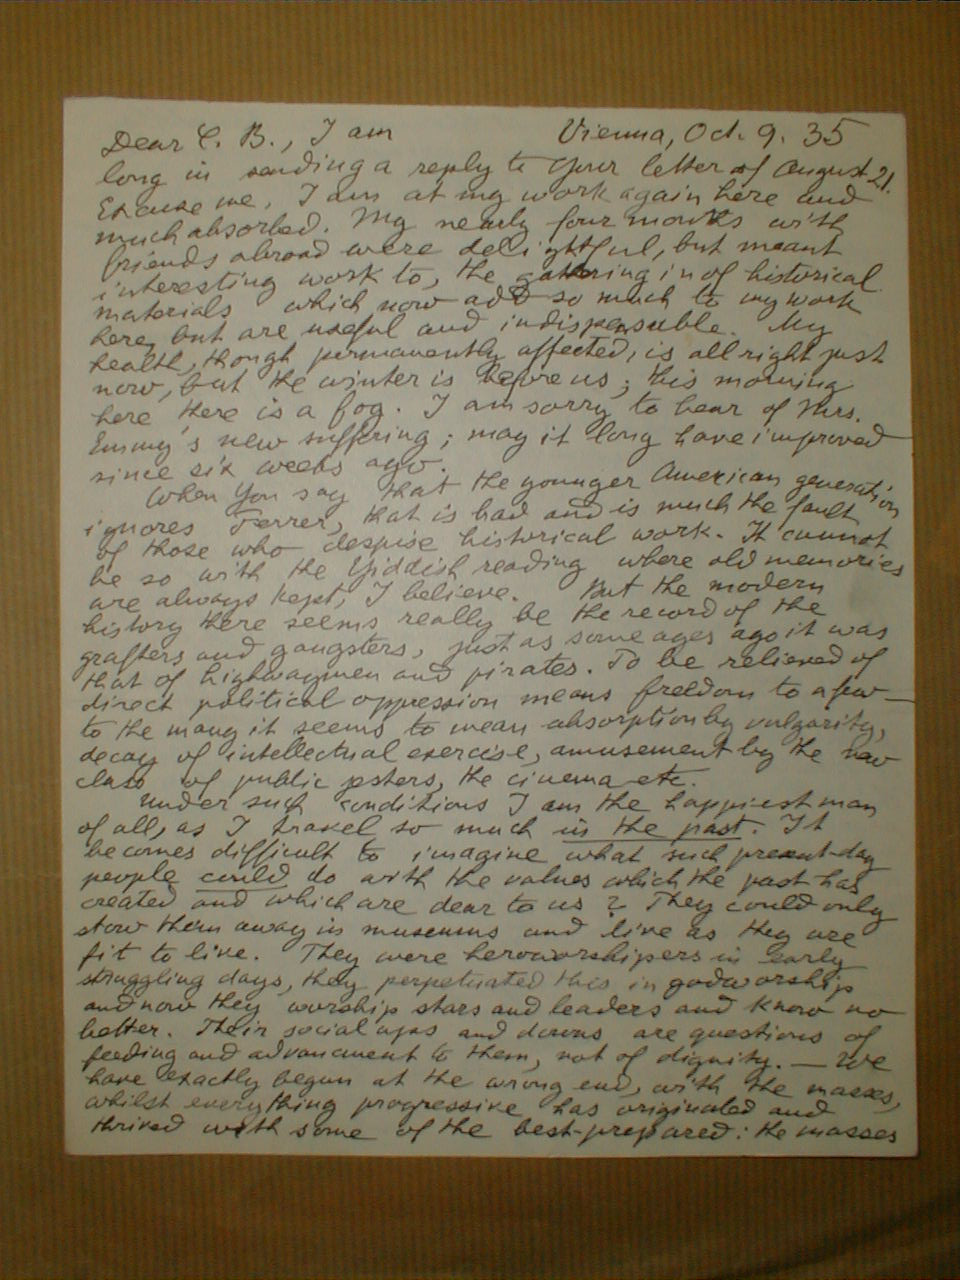 Dear C. B., I am Vienna, Oct. 9. 35
long in sending a reply to your letter of August 21.
Excuse me. I am at my work again here and
much absorbed. My nearly four months with
friends abroad were delightful, but meant
interesting work to, the gathering in of historical
materials which now add so much to my work
here, but are useful and indispensable. My
health, though permanently affected, is all right just
now, but the winter is before us; this morning
here there is a fog. I am sorry to hear of Mrs.
Emmy's new suffering; may it long have improved
since six weeks ago.
When you say that the younger American generation
ignores Ferrer, that is bad and is much the fault
of those who despise historical work. It cannot
be so with the Yiddish reading where old memories
are always kept, I believe. But the modern
history there seems really be the record of the
grafters and gangsters, just as some ages ago it was
that of highwaymen and pirates. To be relieved of
direct political oppression means freedom to a few —
to the many it seems to mean absorption by vulgarity,
decay of intellectual exercise, amusement by the new
class of public jesters, the cinema etc.
Under such conditions I am the happiest man
of all, as I travel so much in the past. It
becomes difficult to imagine what such present-day
people could do with the values which the past has
created and which are dear to us? They could only
stow them away in museums and live as they are
fit to live. They were heroworshipers in early
struggling days, they perpetuated this in godworship
and now they worship stars and leaders and know no
better. Their social ups and downs are questions of
feeding and advancment to them, not of dignity. — We
have exactly begun at the wrong end, with the masses,
whilst everything progressive has originated and
thrived with some of the best-prepared: the masses